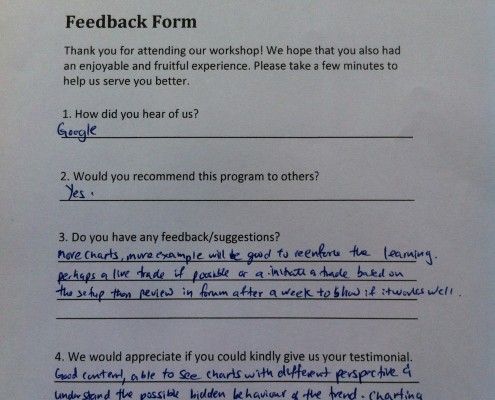 Feedback Form
Thank you for attending our workshop! We hope that you also had
an enjoyable and fruitful experience. Please take a few minutes to
help us serve you better.
1. How did you hear of us?
Google
2. Would you recommend this program to others?
Yes.
3. Do you have any feedback/suggestions?
More charts, more example will be good to reenforce the learning.
perhaps a live trade if possible or a initiate a trade based on
the setup then review in forum after a week to show if it works well.
4. We would appreciate if you could kindly give us your testimonial.
Good content, able to see charts with different perspective &
understand the possible hidden behaviour of the trend. Charting